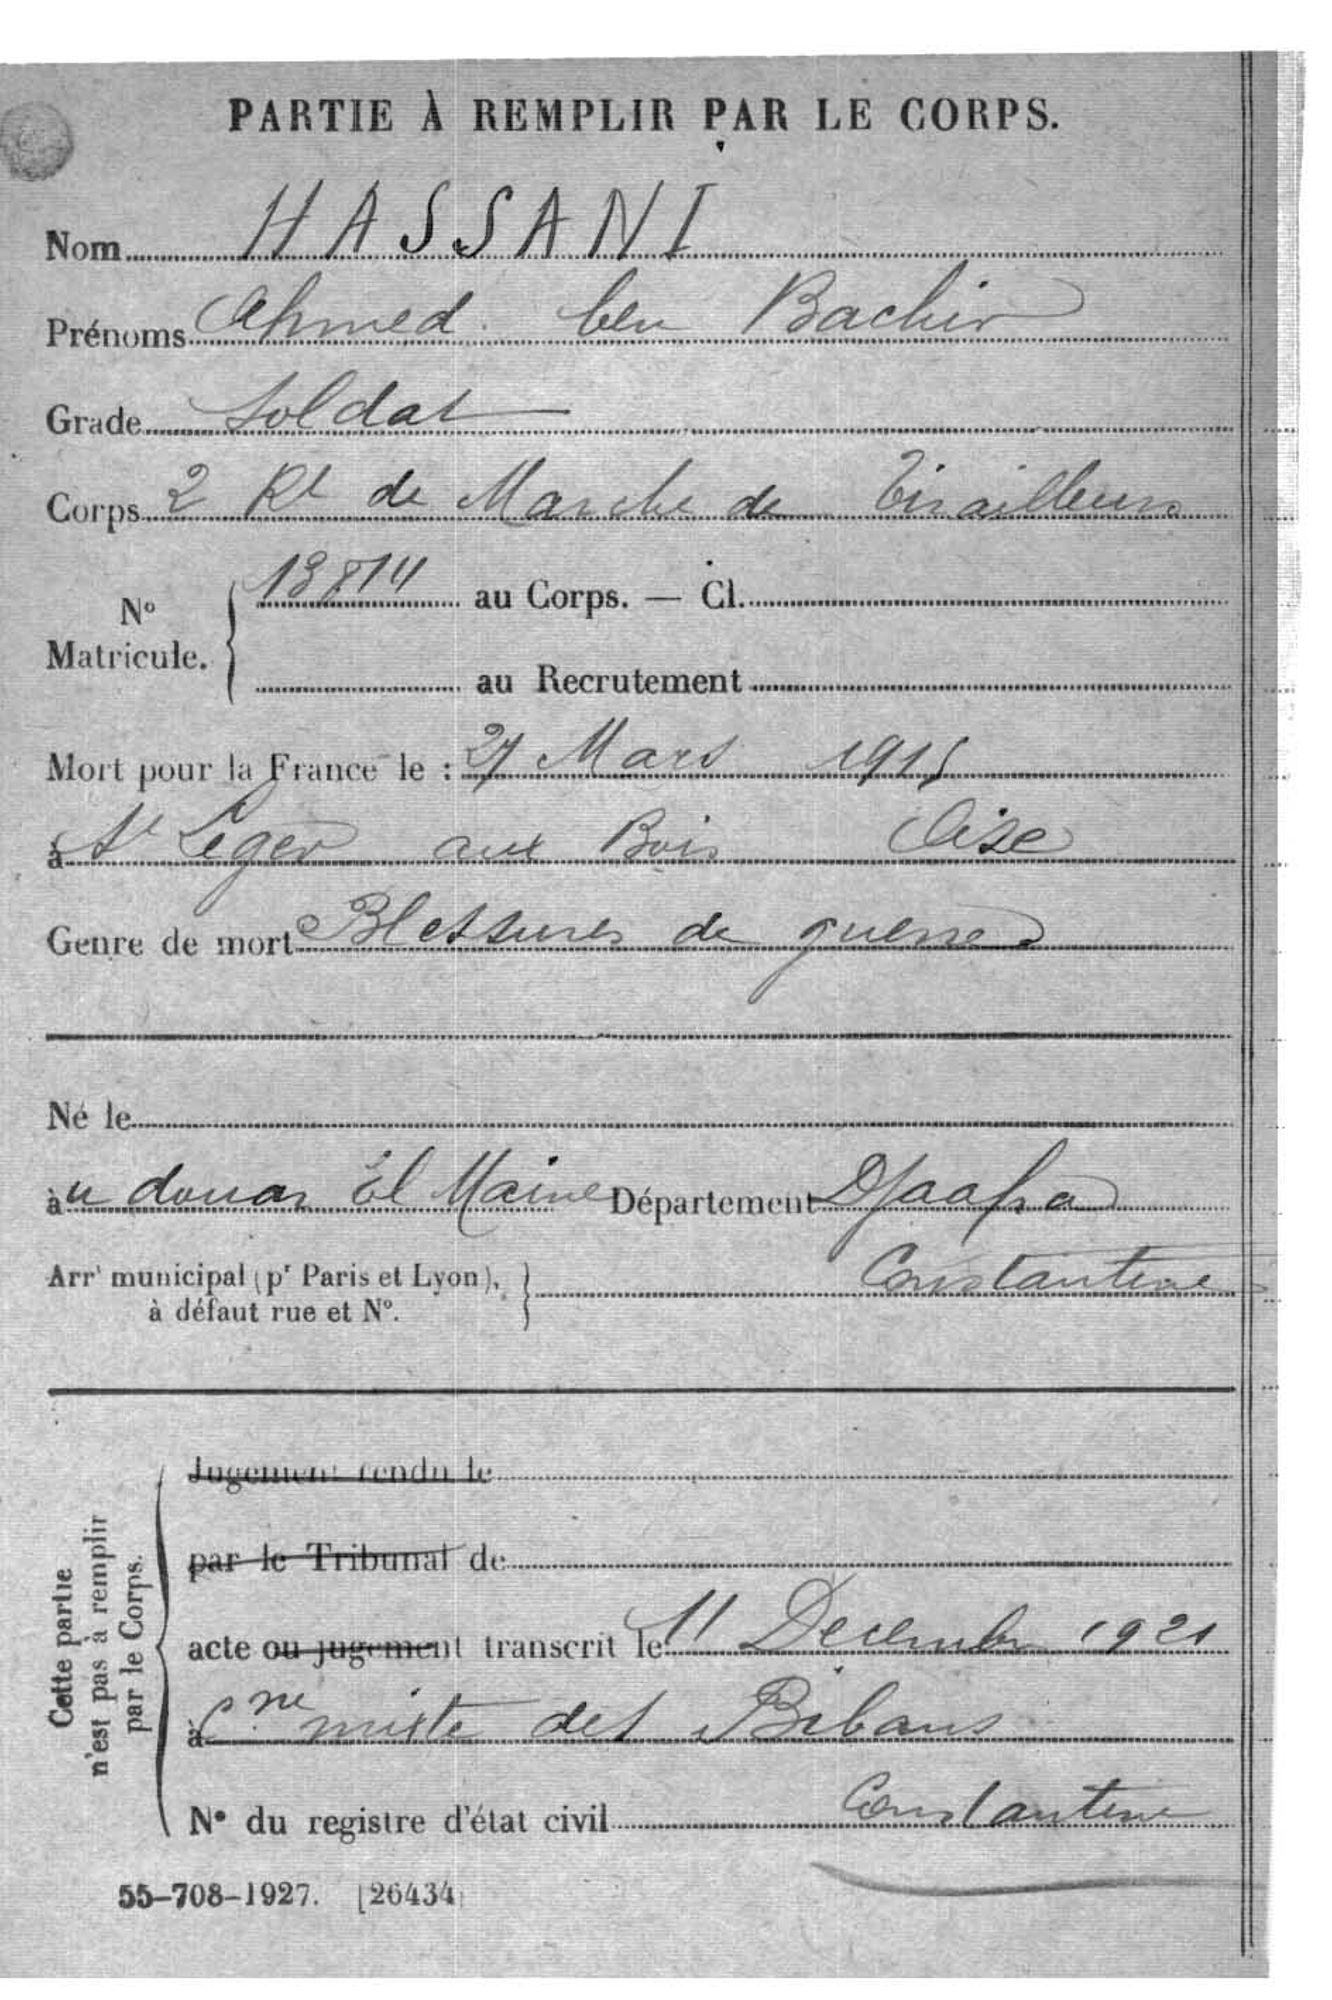 PARTIE À REMPLIR PAR LE CORPS.
Nom HASSANI
Prénoms Ahmed ben Bachir
Grade Soldat
Corps 2 Rt de Marche de Tirailleurs
N° Matricule. 13814 au Corps. — Cl.
au Recrutement
Mort pour la France le : 27 Mars 1915
à St Leger aux Bois Oise
Genre de mort Blessures de guerre
Né le
àu douar El Maine Département Djaafra
Arrt municipal (pr Paris et Lyon), Constantine
à défaut rue et N°.
Cette partie
n'est pas à remplir
par le Corps.
Jugement rendu le
par le Tribunal de
acte ou jugement transcrit le 11 Decembre 1921
à Cne mixte des Bibans
N° du registre d'état civil Constantine
55-708-1927. [26434]